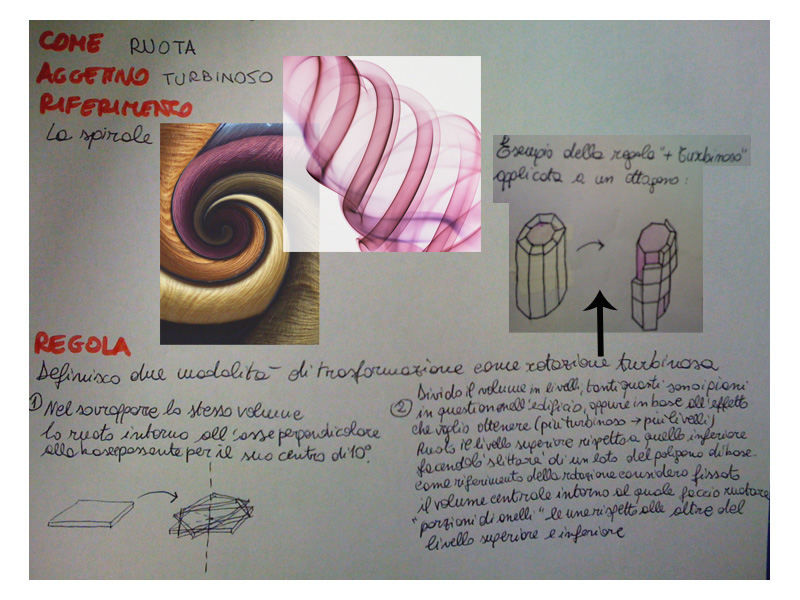 COME RUOTA
AGGETTIVO TURBINOSO
RIFERIMENTO
La spirale
Esempio della regola "+ turbinoso"
applicata a un ottagono:
REGOLA
Definisco due modalità di trasformazione come rotazione turbinosa
① Nel sovrapporre lo stesso volume
lo ruoto intorno all'asse perpendicolare
alla base passante per il suo centro di 10°.
② Divido il volume in livelli, tanti quanti sono i piani
in questione nell'edificio, oppure in base all'effetto
che voglio ottenere (più turbinoso → più livelli)
Ruoto il livello superiore rispetto a quello inferiore
facendolo "slittare" di un lato del poligono di base.
come riferimento della rotazione considero fissato
il volume centrale intorno al quale faccio ruotare
"porzioni di anelli" le une rispetto alle altre del
livello superiore e inferiore